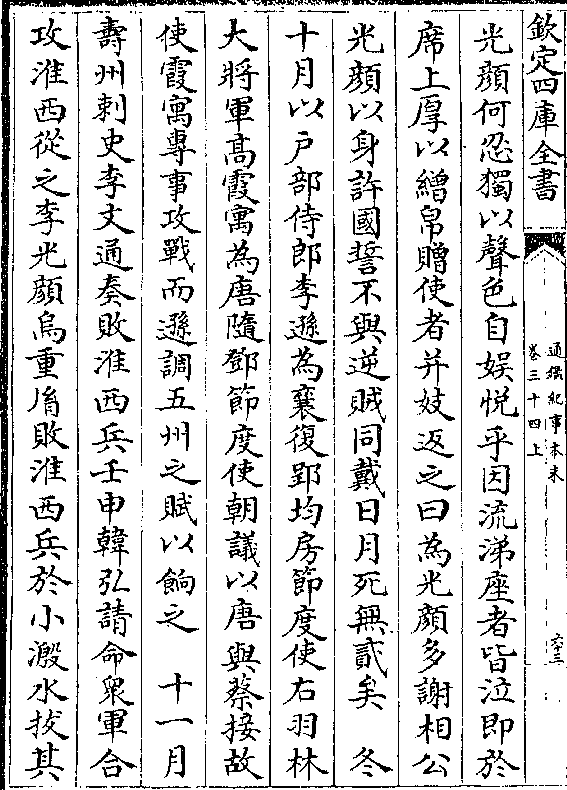 欽定四庫全書
通鑑紀事本末
卷三十四上
六十三
光顔何忍獨以聲色自娛悅乎因流涕座者皆泣即於
席上厚以繒帛贈使者并妓返之曰為光顔多謝相公
光顔以身許國誓不與逆賊同戴日月死無貳矣　冬
十月以戶部侍郎李遜為襄復郢均房節度使右羽林
大將軍髙霞寓為唐隨鄧節度使朝議以唐與蔡接故
使霞寓專事攻戰而遜調五州之賦以餉之　十一月
壽州刺史李文通奏敗淮西兵壬申韓弘請命衆軍合
攻淮西從之李光顔烏重𦙍敗淮西兵於小溵水拔其